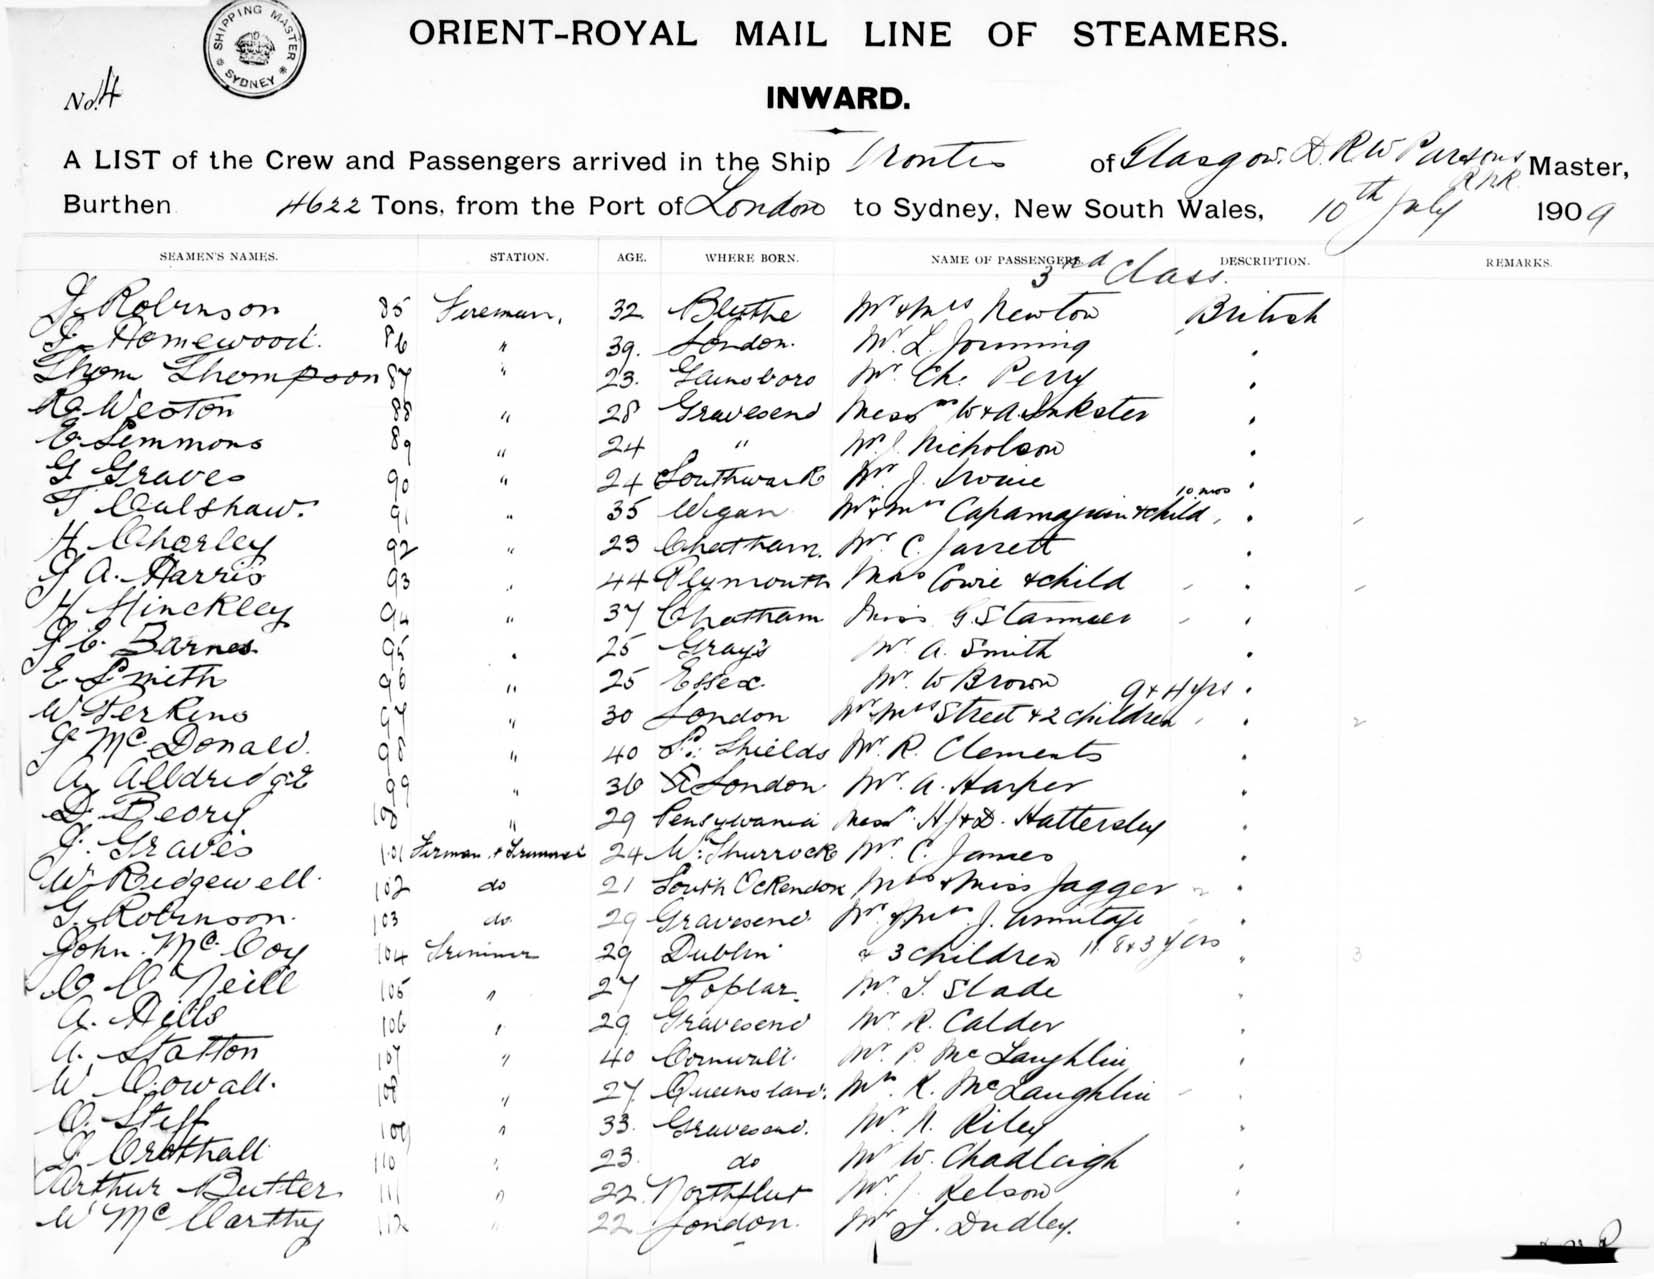 SHIPPING MASTER
SYDNEY
ORIENT-ROYAL MAIL LINE OF STEAMERS.
No. 4
INWARD.
A LIST of the Crew and Passengers arrived in the Ship Orontes of Glasgow. D. R W Parsons RNR Master,
Burthen 4622 Tons, from the Port of London to Sydney, New South Wales, 10th July 1909
SEAMEN'S NAMES. STATION. AGE. WHERE BORN. NAME OF PASSENGERS. DESCRIPTION. REMARKS.
3rd Class.
J. Robinson 85 Fireman, 32 Blythe Mr & Mrs Newton British
J. Homewood. 86 " 39. London. Mr. L. "
Thom Thompson 87 " 23. Gainsboro Mr. Ch. Perry "
R Weston 88 " 28 Gravesend Messrs W & A Inkster "
E. Simmons 89 " 24 " Mr. J. Nicholson "
G Graves 90 " 24 Southwark Mr. J. Irvine "
T Culshaw. 91 " 35 Wigan Mr & Mrs & child 10 mos "
H Chorley 92 " 23 Chatham. Mr C. Jarrett "
J A. Harris 93 " 44 Plymouth Mrs Cowie & child "
H Hinckley 94 " 37 Chatham Miss G. "
J C. Barnes 95 " 25 Grays Mr. A. Smith "
E Smith 96 " 25 Essex. Mr. W Brown "
W Perkins 97 " 30 London Mr & Mrs Street & 2 children 9 & 4 yrs " 2
J McDonald. 98 " 40 S. Shields Mr. R. Clements "
A. Alldridge 99 " 36 London Mr. A. Harper "
D. Beory 100 " 29 Pensylvania Messrs. H J & D. Hattersley "
J. Graves 101 Firman & Trimmer 24 W. Thurrock Mr. C. James "
W. Ridgewell. 102 do 21 South Ockendon Mrs & Miss Jagger "
G. Robinson. 103 do. 29 Gravesend Mr. & Mrs J. Armitage "
John. McCoy 104 Trimmer 29 Dublin & 3 children 11. 8 & 3 yrs " 3
C O Neill 105 " 27 Poplar. Mr. T. Slade "
A. Hills 106 " 29 Gravesend Mr. R. Calder "
A. Statton 107 " 40 Cornwall. Mr. P. McLaughlin "
W Cowall. 108 " 27 Queensland. Mrs. K. McLaughlin "
O. Steff 109 " 33. Gravesend. Mr. N. Riley "
J Crothall 110 " 23. do Mr W. Chadleigh "
Arthur Butler 111 " 22. Northfleet Mr. J. Relson "
W McCarthy 112 " 22 London. Mr T. Dudley. "